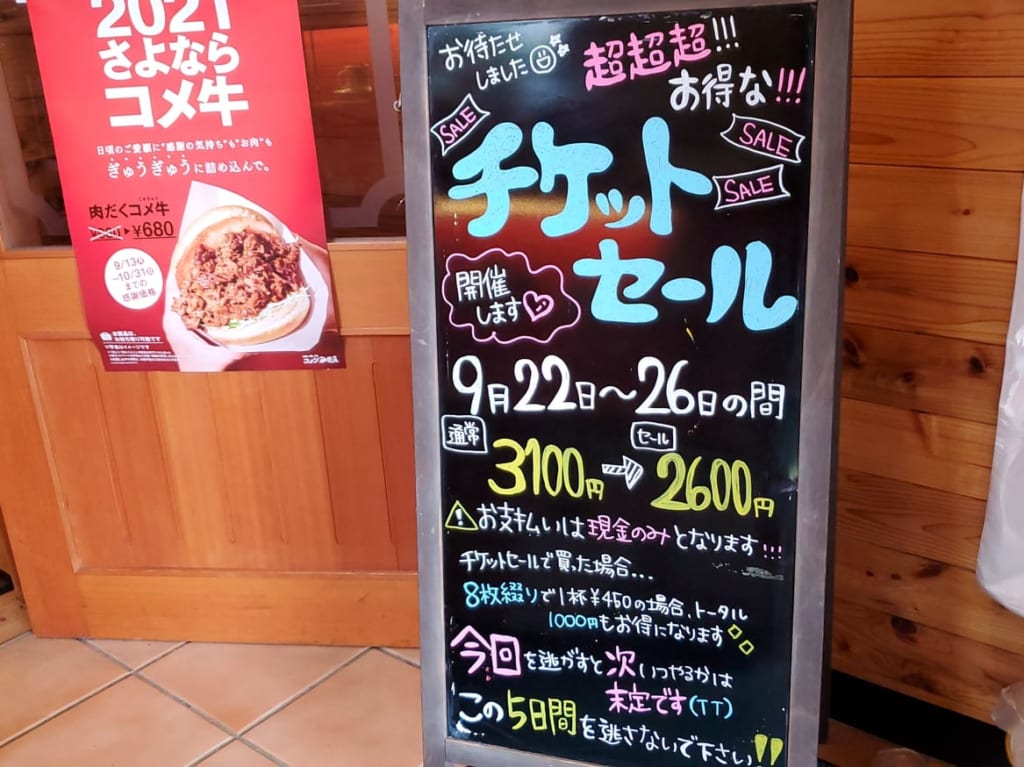 2021
さよなら
コメ牛
日頃のご愛顧に"感謝の気持ち"も"お肉"も
ぎゅうぎゅうに詰め込んで。
肉だくコメ牛
¥680
9/13㊊
~10/31㊐
までの
感謝価格
本商品は、
お持ち帰り可能です
※写真はイメージです
お待たせ
しました
超超超!!!
お得な!!!
SALE
SALE
SALE
チケット
セール
開催
します
9月22日~26日の間
通常
3100円
セール
2600円
お支払いは現金のみとなります!!!
チケットセールで買った場合...
8枚綴りで1杯¥450の場合、トータル
1000円もお得になります
今回を逃がすと次いつやるかは
未定です(TT)
この5日間を逃さないで下さい!!